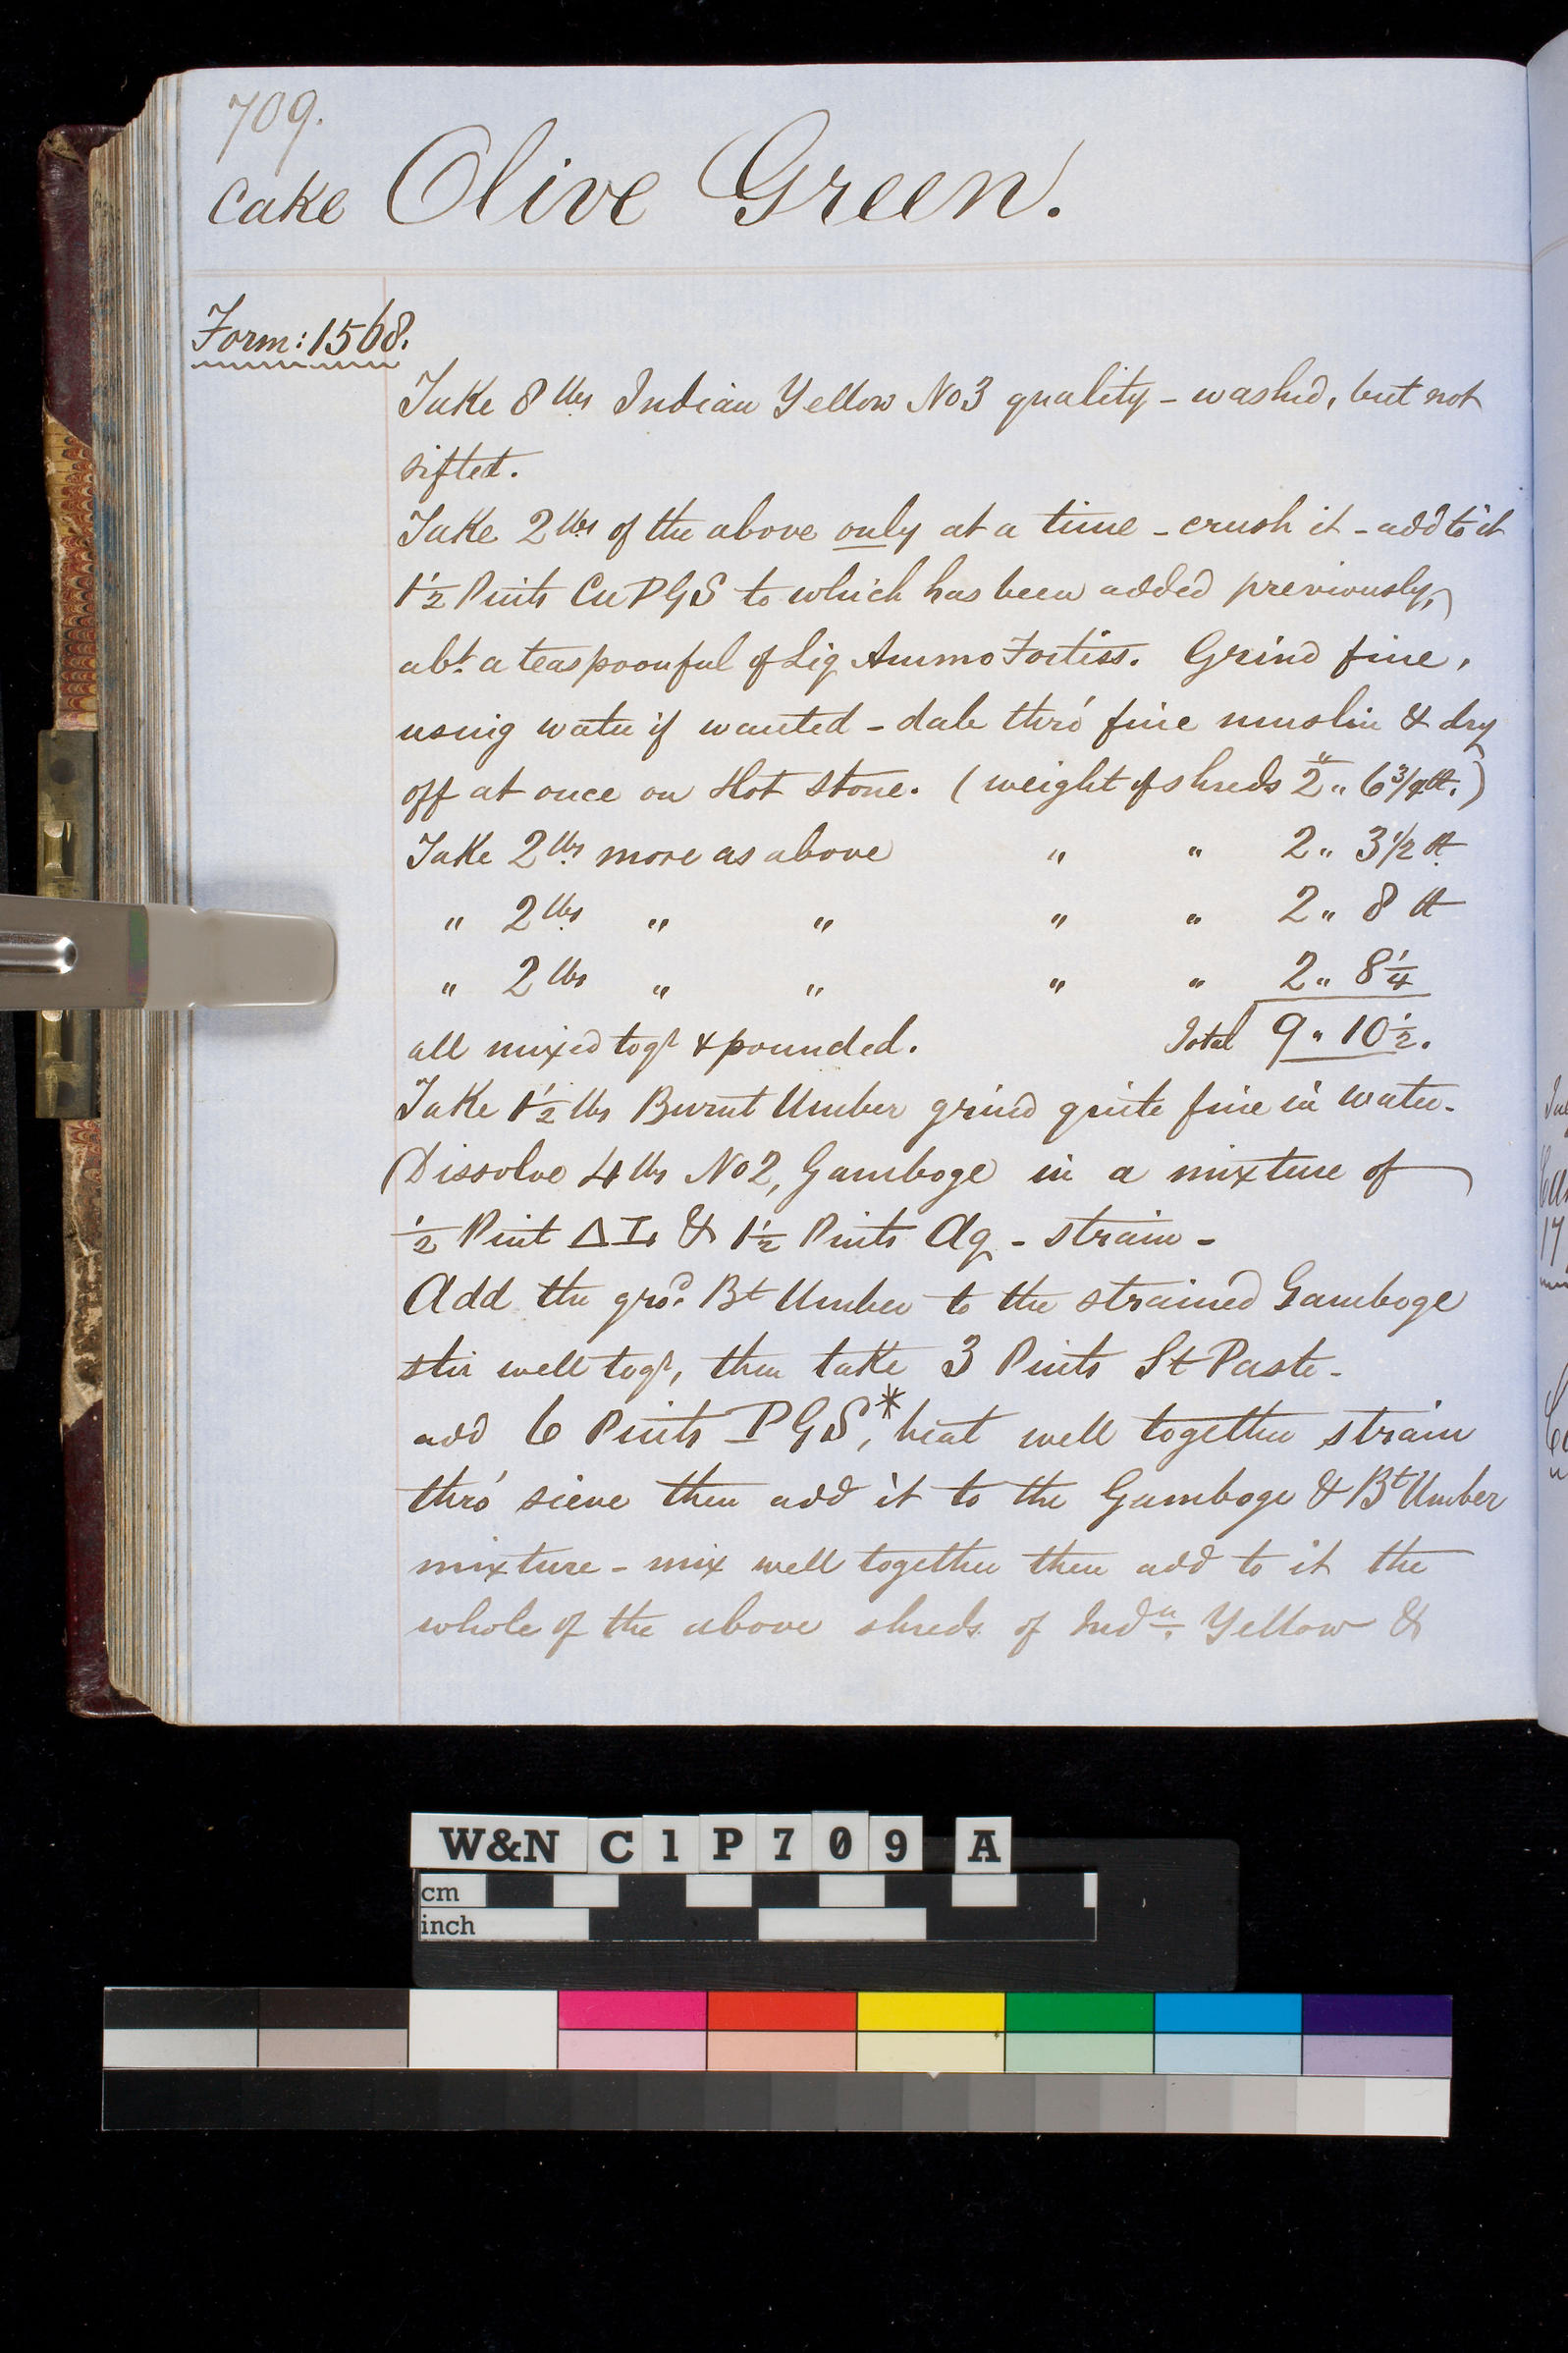 709.
Cake Olive Green.
Form: 1568.
Take 8 lbs Indian Yellow No 3 quality – washed, but not
sifted.
Take 2 lbs of the above only at a time – crush it – add to it
1½ Pints Cu PGS to which has been added previously,
abt. a teaspoonful of Liq Ammo Fortiss. Grind fine,
using water if wanted – dab thro' fine muslin & dry
off at once on Hot Stone. (weight of shreds 2 „ 6¾
Take 2 lbs. more as above „ „ 2 „ 3½
„ 2 lbs „ „ „ „ 2 „ 8
„ 2 lbs „ „ „ „ 2 „ 8¼
all mixed togr & pounded. Total 9 „ 10½.
Take 1½ lbs Burnt Umber grind quite fine in water.
Dissolve 4 lbs No 2, Gamboge in a mixture of
½ Pint Δ I. & 1½ Pints Aq – strain –
Add the grod. Bt Umber to the strained Gamboge
stir well togr, then take 3 Pints St Paste –
add 6 Pints PGS*, beat well together strain
thro' sieve then add it to the Gamboge & Bt Umber
mixture – mix well together then add to it the
whole of the above shreds of Indn. Yellow &
W&N C1P709 A
cm
inch